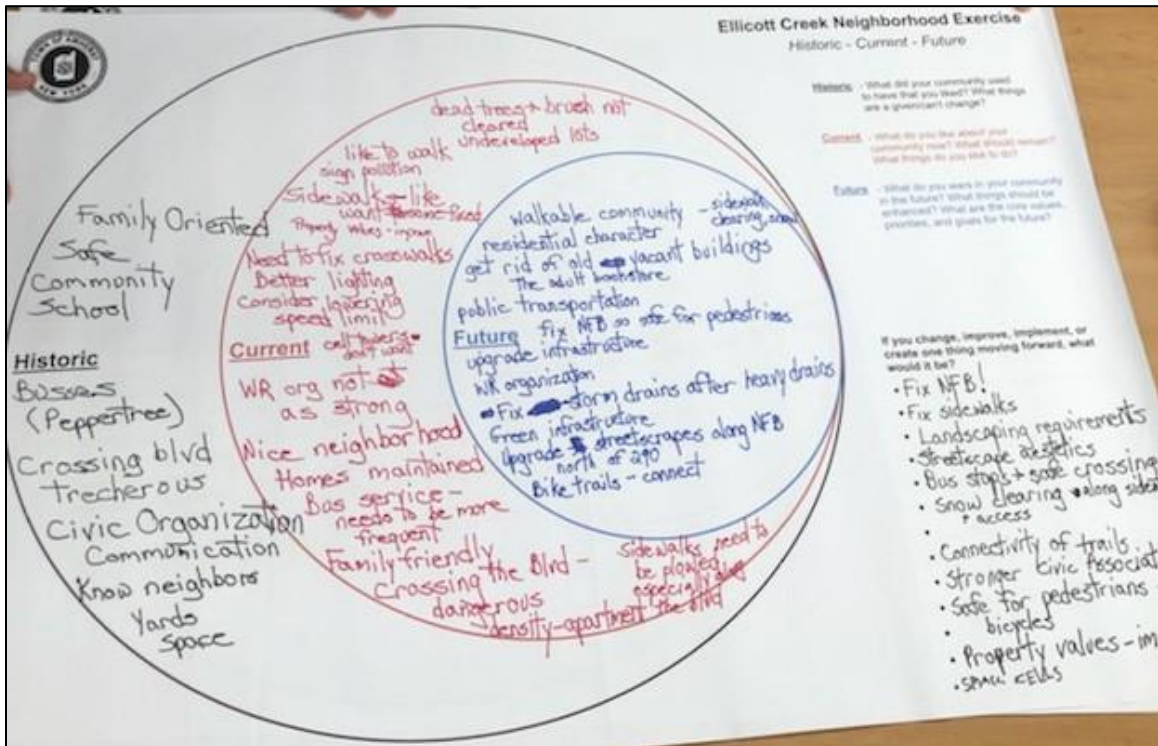 TOWN OF AMHERST
NEW YORK
Ellicott Creek Neighborhood Exercise
Historic - Current - Future
Historic - What did your community used
to have that you liked? What things
are a given/can't change?
Current - What do you like about your
community now? What should remain?
What things do you like to do?
Future - What do you want in your community
in the future? What things should be
enhanced? What are the core values,
priorities, and goals for the future?
Family Oriented
Safe
Community
School
Historic
Busses
(Peppertree)
Crossing blvd
trecherous
Civic Organization
Communication
Know neighbors
Yards
Space
dead trees + brush not
cleared
undeveloped lots
like to walk
sign pollution
Sidewalk - like
want some fixed
Property values - improve
Need to fix crosswalks
Better lighting
Consider lowering
speed limit
Current
cell towers -
don't want
WR org not
as strong
Nice neighborhood
Homes maintained
Bus service -
needs to be more
frequent
Family friendly
Crossing the Blvd -
dangerous
density - apartment
sidewalks need to
be plowed
especially along
the blvd
walkable community - sidewalk
clearing snow
residential character
get rid of old vacant buildings
The adult bookstore
public transportation
Future
fix NFB so safe for pedestrians
upgrade infrastructure
WR organization
Fix storm drains after heavy drains
Green infrastructure
Upgrade streetscrapes along NFB
north of 290
Bike trails - connect
If you change, improve, implement, or
create one thing moving forward, what
would it be?
• Fix NFB!
• Fix sidewalks
• Landscaping requirements
• Streetscape aestetics
• Bus stops + safe crossing
• Snow clearing along
+ access
• Connectivity of trails
• Stronger Civic
• Safe for pedestrians -
• bicycles
• Property values -
• small cells